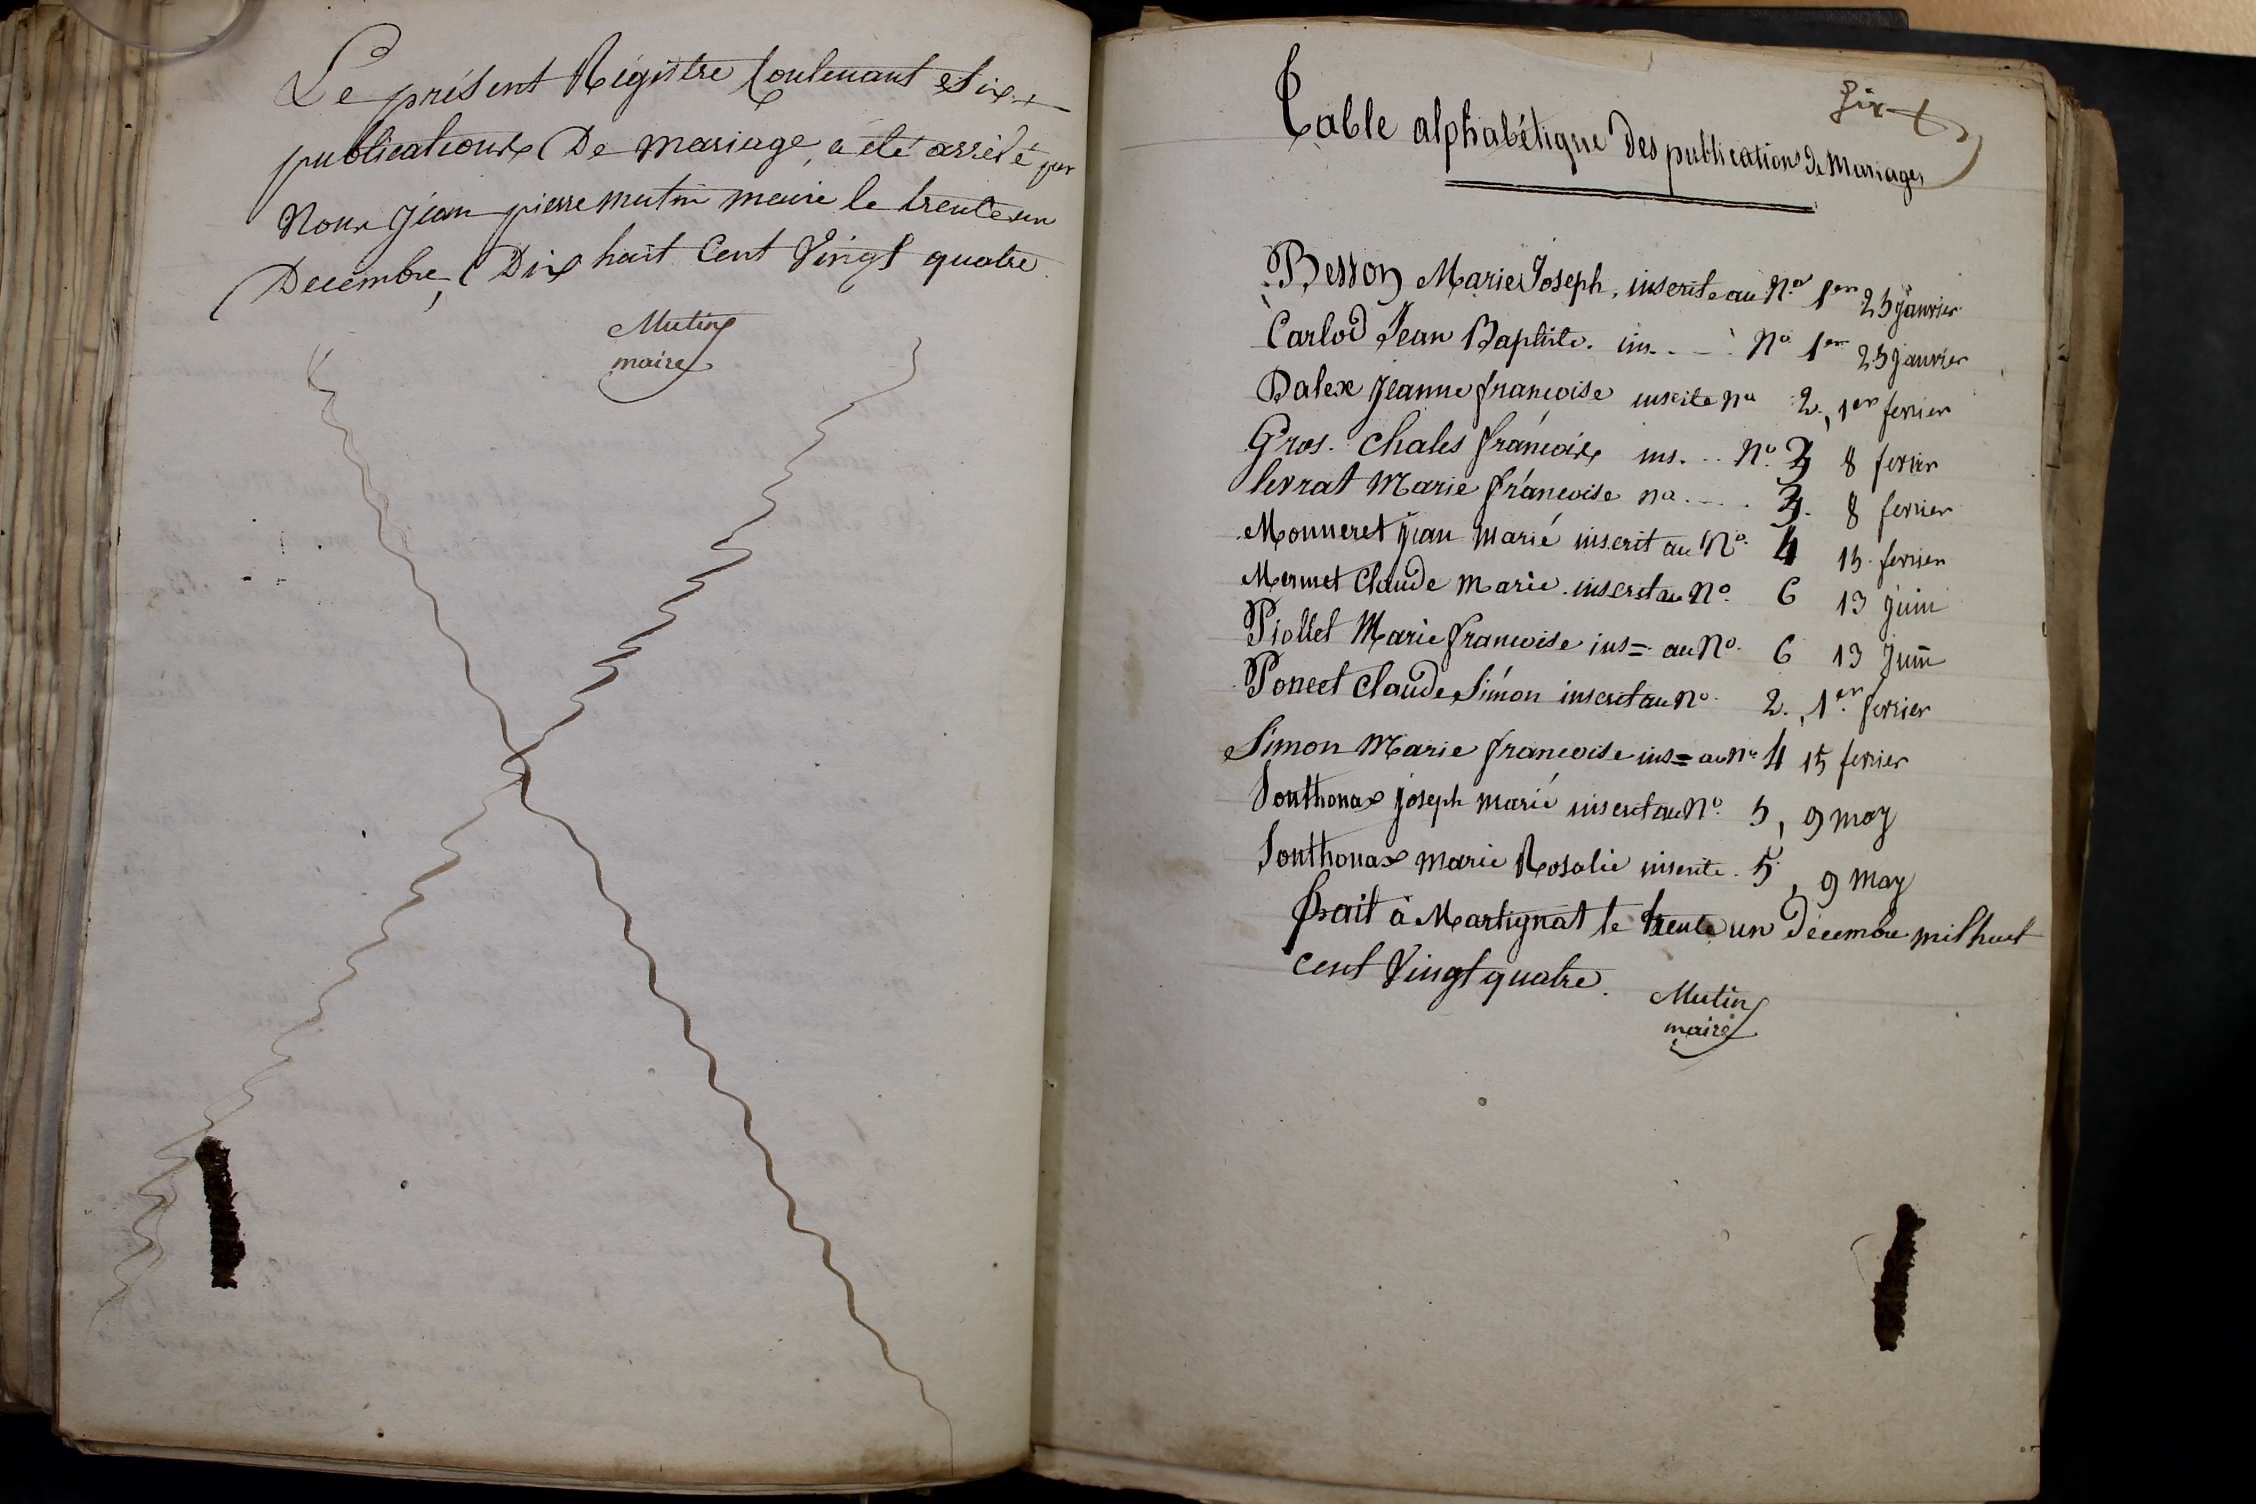 Le présent Régistre Contenant Six
publications De mariage, a été arrêté par
Nous jean pierre mutin maire le trente un
Decembre, Dix huit Cent Vingt quatre.
Mutin
maire
Six
Table alphabétique des publications de Mariages
Besson Marie Joseph, inscrite au No. 1er 25 janvier
Carlod Jean Baptiste. ins. - - No 1er 25 janvier
Dalex jeanne francoise inscite no 2, 1er fevrier
Gros. Chales francois ins. - - No. 3 8 fevrier
levrat Marie francoise no. - - . 3. 8 fevrier
Monneret jean marié inscrit au No. 4 15. fevrier
Mermet Claude marie. inscrit au No. 6 13 juin
Piollet Marie francoise ins= au No. 6 13 Juin
Poncet Claude Simon inscrit au no. 2., 1er fevrier
Simon Marie francoise ins= au no 4 15 fevrier
Sonthonax joseph marié inscrit au No. 5, 9 may
Sonthonax marie Rosalie inscrite. 5, 9 may
fait à Martignat le trente un décembre mil huit
cent Vingt quatre.
Mutin
maire